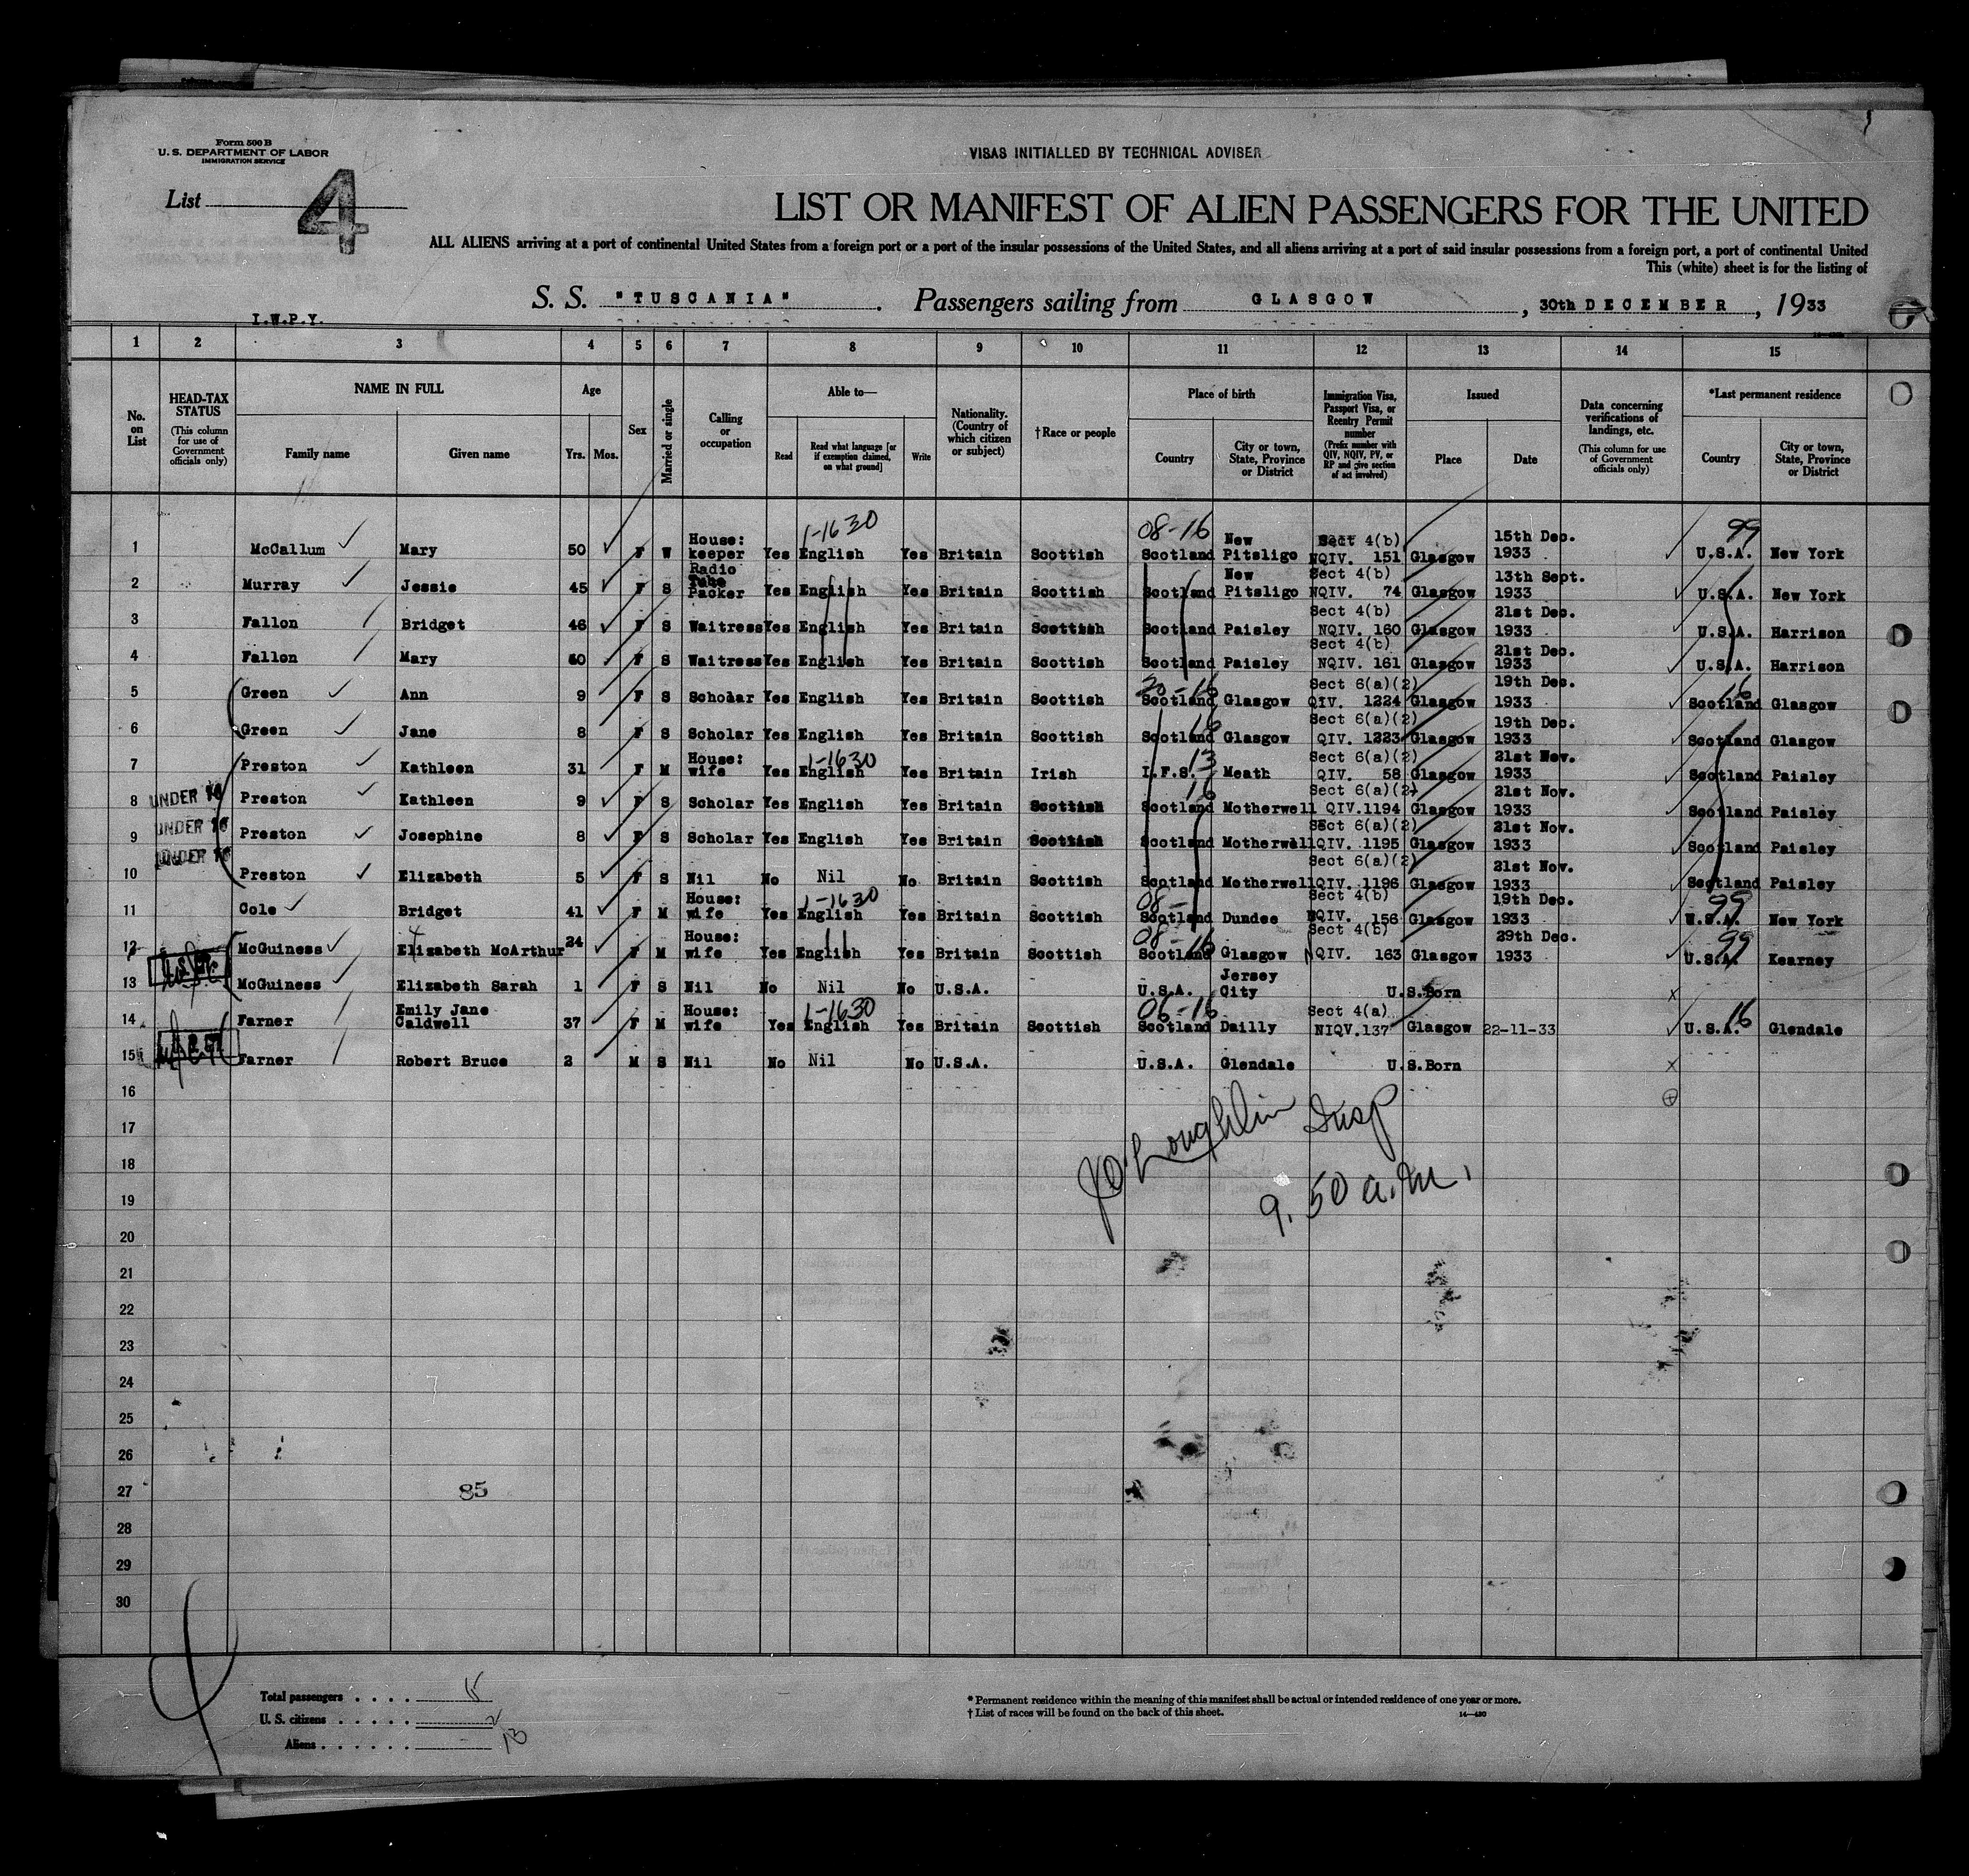 Form 500 B
U. S. DEPARTMENT OF LABOR
IMMIGRATION SERVICE
VISAS INITIALLED BY TECHNICAL ADVISER
List 4
LIST OR MANIFEST OF ALIEN PASSENGERS FOR THE UNITED
ALL ALIENS arriving at a port of continental United States from a foreign port or a port of the insular possessions of the United States, and all aliens arriving at a port of said insular possessions from a foreign port, a port of continental United
This (white) sheet is for the listing of
S. S. "TUSCANIA". Passengers sailing from GLASGOW, 30th DECEMBER, 1933
I.W.P.Y.
1 2 3 4 5 6 7 8 9 10 11 12 13 14 15
No. on List
HEAD-TAX STATUS (This column for use of Government officials only)
NAME IN FULL
Family name Given name
Age
Yrs. Mos.
Sex
Married or single
Calling or occupation
Able to—
Read Read what language [or if exemption claimed, on what ground] Write
Nationality. (Country of which citizen or subject)
†Race or people
Place of birth
Country City or town, State, Province or District
Immigration Visa, Passport Visa, or Reentry Permit number (Prefix number with QIV, NQIV, PV, or RP and give section of act involved)
Issued
Place Date
Data concerning verifications of landings, etc. (This column for use of Government officials only)
*Last permanent residence
Country City or town, State, Province or District
1-1630 08-16 99
1 McCallum Mary 50 F W House: keeper Yes English Yes Britain Scottish Scotland New Pitsligo Sect 4(b) NQIV. 151 Glasgow 15th Dec. 1933 U.S.A. New York
2 Murray Jessie 45 F S Radio Tube Packer Yes English Yes Britain Scottish Scotland New Pitsligo Sect 4(b) NQIV. 74 Glasgow 13th Sept. 1933 U.S.A. New York
3 Fallon Bridget 46 F S Waitress Yes English Yes Britain Scottish Scotland Paisley Sect 4(b) NQIV. 160 Glasgow 21st Dec. 1933 U.S.A. Harrison
4 Fallon Mary 40 F S Waitress Yes English Yes Britain Scottish Scotland Paisley Sect 4(b) NQIV. 161 Glasgow 21st Dec. 1933 U.S.A. Harrison
20-16 16
5 Green Ann 9 F S Scholar Yes English Yes Britain Scottish Scotland Glasgow Sect 6(a)(2) QIV. 1224 Glasgow 19th Dec. 1933 Scotland Glasgow
16
6 Green Jane 8 F S Scholar Yes English Yes Britain Scottish Scotland Glasgow Sect 6(a)(2) QIV. 1223 Glasgow 19th Dec. 1933 Scotland Glasgow
1-1630 13
7 Preston Kathleen 31 F M House: wife Yes English Yes Britain Irish I.F.S. Meath Sect 6(a)(2) QIV. 58 Glasgow 21st Nov. 1933 Scotland Paisley
16
8 UNDER 16 Preston Kathleen 9 F S Scholar Yes English Yes Britain Scottish Scotland Motherwell Sect 6(a)(2) QIV. 1194 Glasgow 21st Nov. 1933 Scotland Paisley
9 UNDER 16 Preston Josephine 8 F S Scholar Yes English Yes Britain Scottish Scotland Motherwell Sect 6(a)(2) QIV. 1195 Glasgow 21st Nov. 1933 Scotland Paisley
10 UNDER 16 Preston Elizabeth 5 F S Nil No Nil No Britain Scottish Scotland Motherwell Sect 6(a)(2) QIV. 1196 Glasgow 21st Nov. 1933 Scotland Paisley
1-1630 08- 99
11 Cole Bridget 41 F M House: wife Yes English Yes Britain Scottish Scotland Dundee Sect 4(b) NQIV. 156 Glasgow 19th Dec. 1933 U.S.A. New York
08-16 99
12 McGuiness Elizabeth McArthur 24 F M House: wife Yes English Yes Britain Scottish Scotland Glasgow Sect 4(b) NQIV. 163 Glasgow 29th Dec. 1933 U.S.A. Kearney
13 McGuiness Elizabeth Sarah 1 F S Nil No Nil No U.S.A. U.S.A. Jersey City U.S.Born x
1-1630 06-16 16
14 Farner Emily Jane Caldwell 37 F M House: wife Yes English Yes Britain Scottish Scotland Dailly Sect 4(a) NIQV.137 Glasgow 22-11-33 U.S.A. Glendale
15 Farner Robert Bruce 2 M S Nil No Nil No U.S.A. U.S.A. Glendale U.S.Born x
16
17
18
19
20
21
22
23
24
25
26
27
28
29
30
J O'Loughlin Insp
9.50 a.m.
85
Total passengers . . . . 15
U. S. citizens . . . . . 2
Aliens . . . . . . 13
* Permanent residence within the meaning of this manifest shall be actual or intended residence of one year or more.
† List of races will be found on the back of this sheet.
14—430